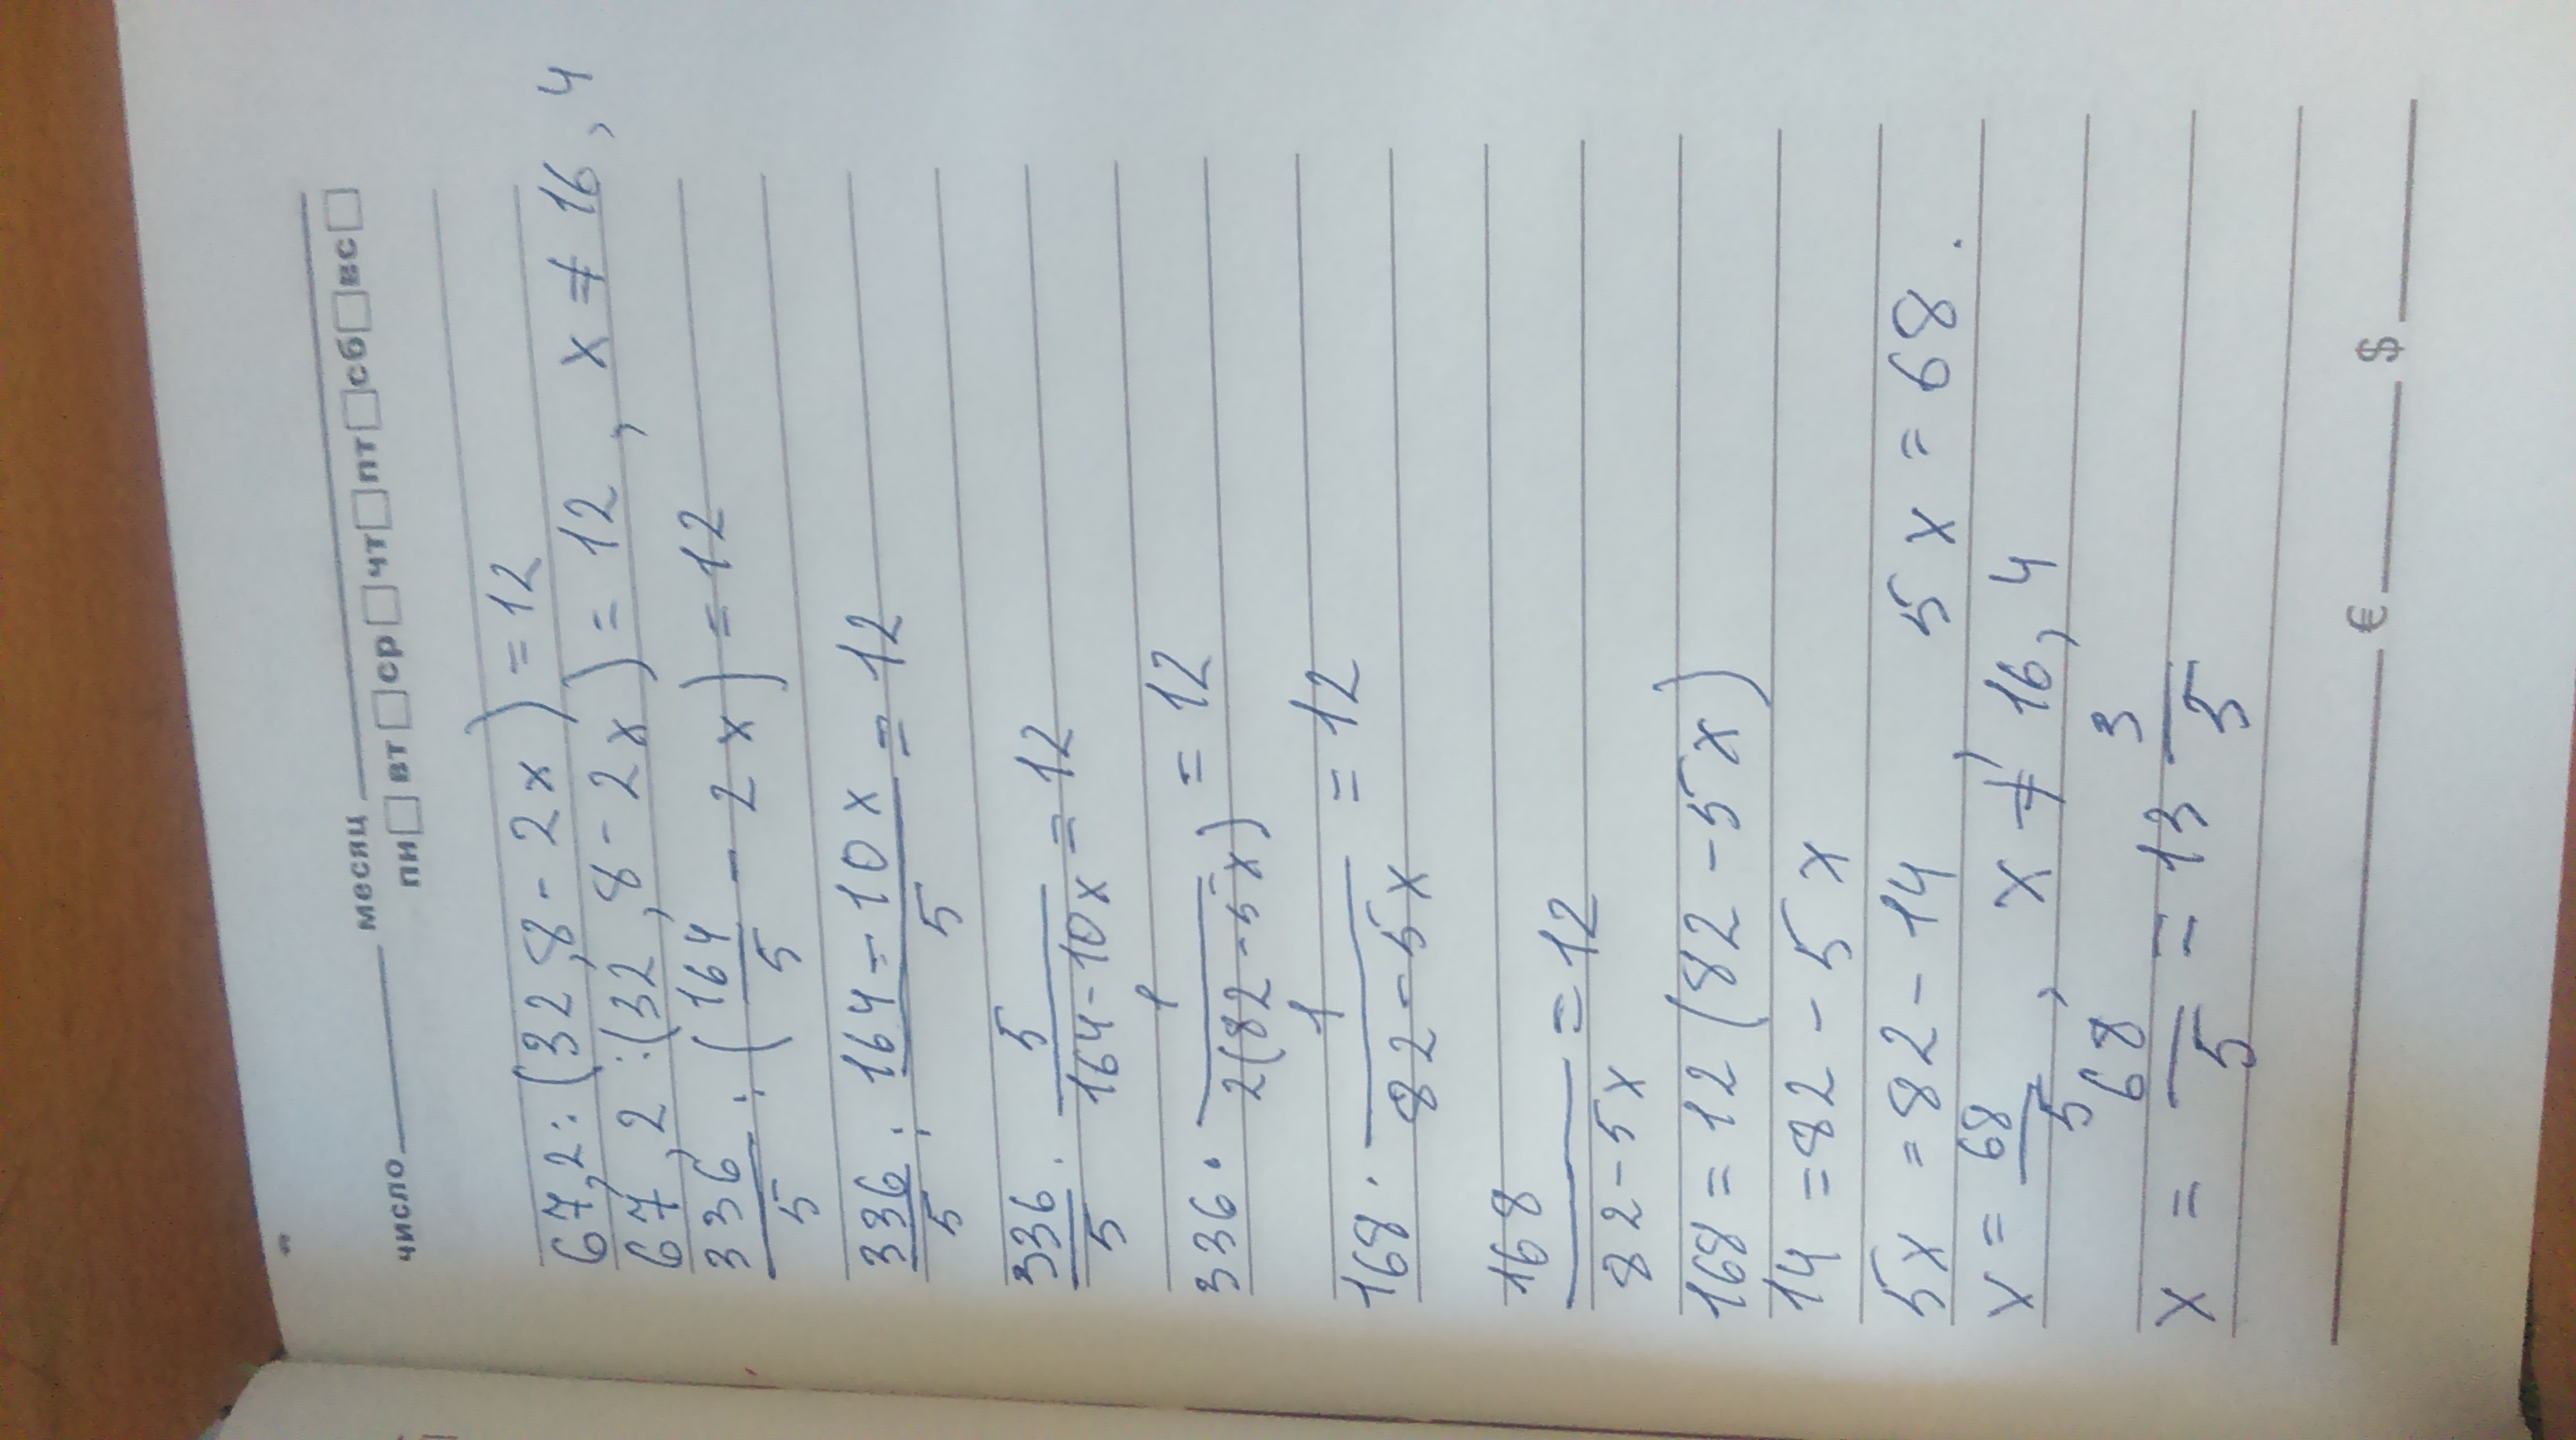 число месяц
пн вт ср чт пт сб вс
67,2:(32,8-2x)=12
67,2:(32,8-2x)=12, x≠16,4
336/5:(164/5-2x)=12
336/5:164-10x/5=12
336/5·5/164-10x=12
336·1/2(82-5x)=12
168·1/82-5x=12
168/82-5x=12
168=12(82-5x)
14=82-5x
5x=82-14 5x=68.
x=68/5, x≠16,4
x=68/5=13 3/5
€ $